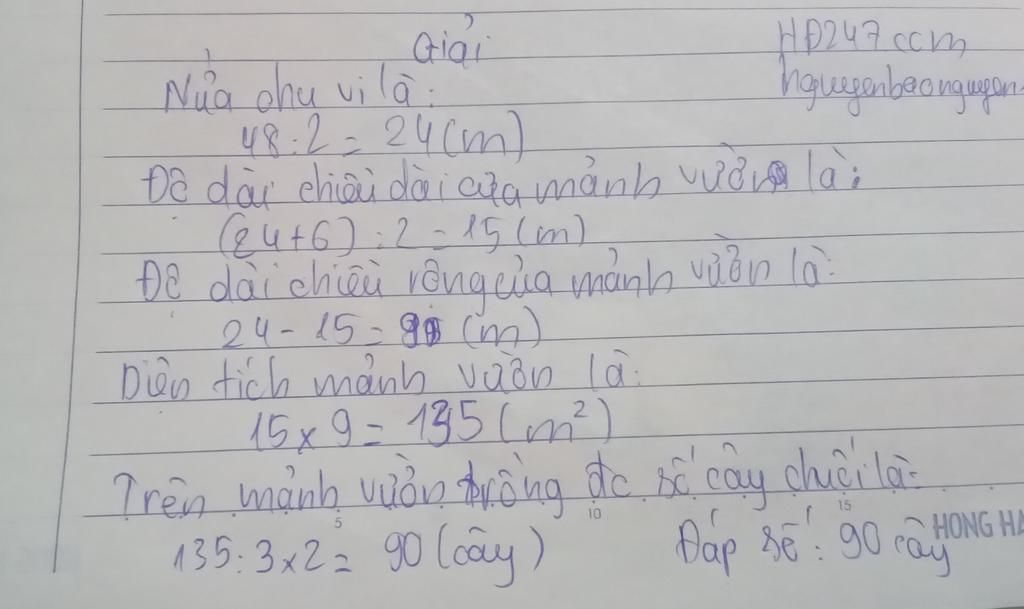 Giải
HĐ247.com
nguyenbaonguyen
Nửa chu vi là:
48:2 = 24 (m)
Độ dài chiều dài của mảnh vườn là:
(24+6) : 2 = 15 (m)
Độ dài chiều rộng của mảnh vườn là:
24 - 15 = 9 (m)
Diện tích mảnh vườn là:
15 x 9 = 135 (m²)
Trên mảnh vườn trồng đc số cây chuối là:
5 10 15
135 : 3 x 2 = 90 (cây) Đáp số : 90 cây
HONG HA